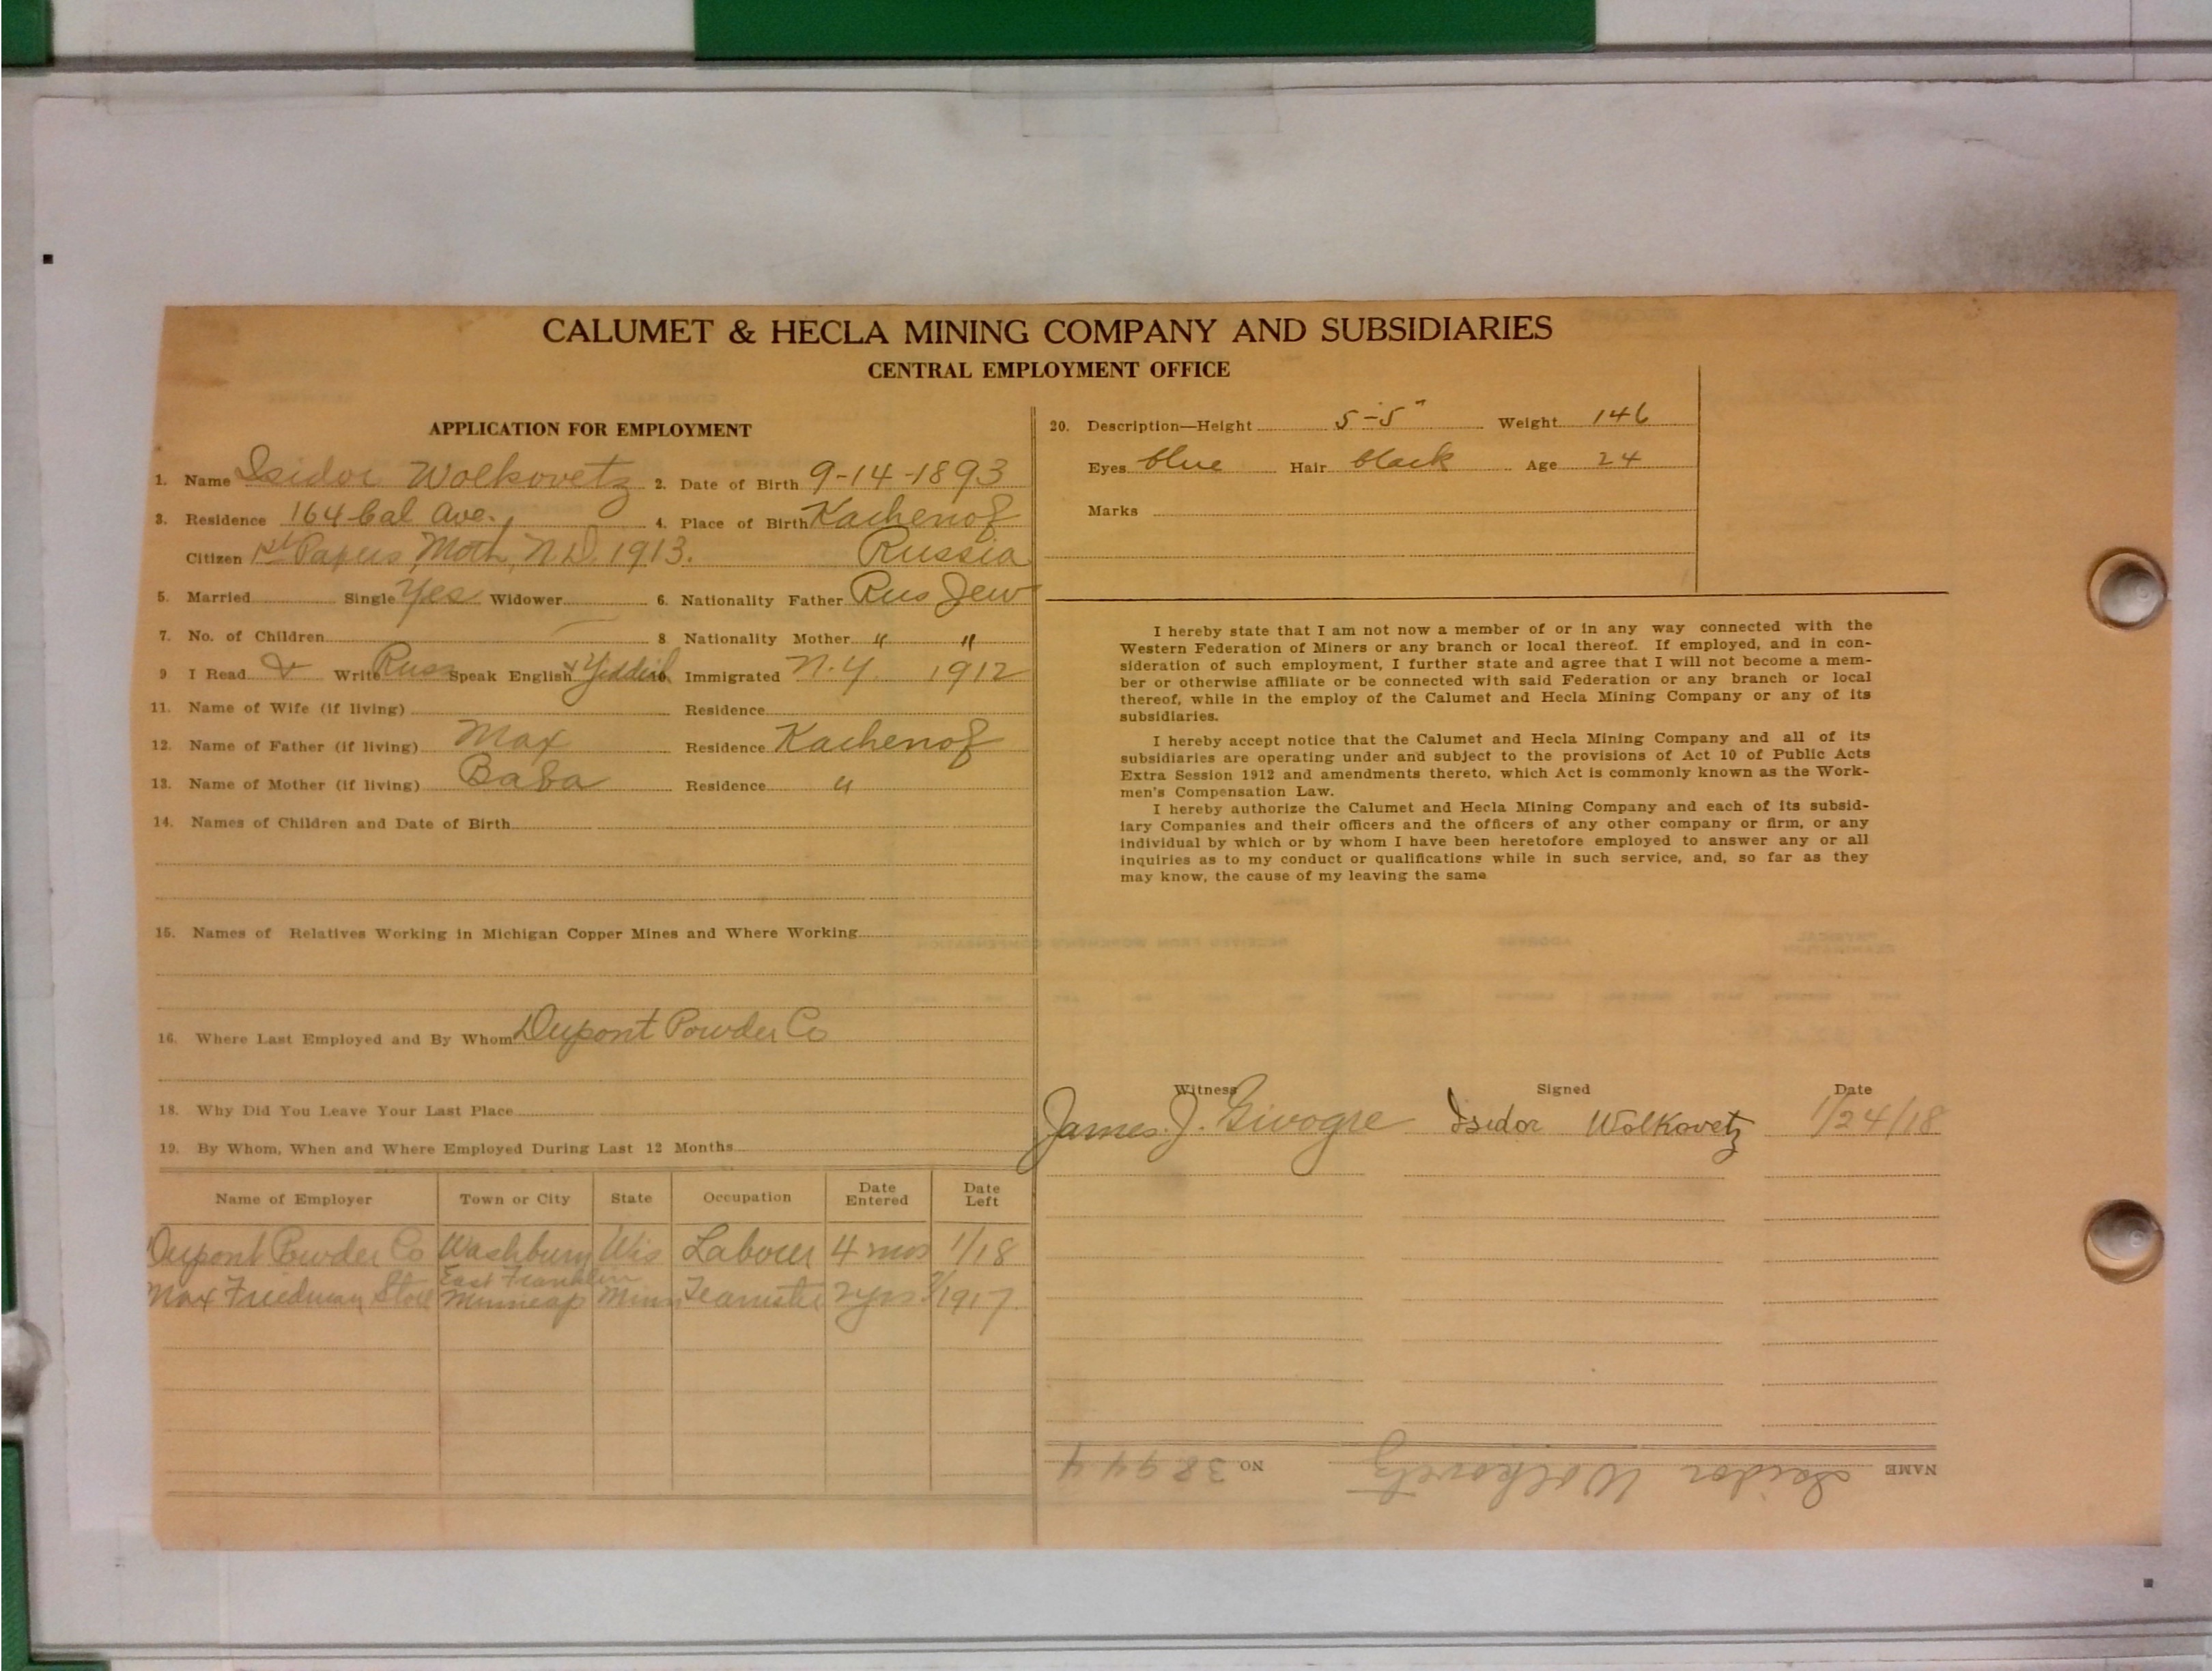 CALUMET & HECLA MINING COMPANY AND SUBSIDIARIES
CENTRAL EMPLOYMENT OFFICE
APPLICATION FOR EMPLOYMENT
1. Name Isidor Wolkovetz 2. Date of Birth 9-14-1893
3. Residence 164 Cal Ave. 4. Place of Birth Kachenof
Citizen 1st Papers, Moth, N.D. 1913. Russia
5. Married Single Yes Widower 6. Nationality Father Rus Jew
7. No. of Children 8. Nationality Mother " "
9 I Read & Write Russ Speak English & Yeddish Immigrated N.Y. 1912
11. Name of Wife (if living) Residence
12. Name of Father (if living) Max Residence Kachenof
13. Name of Mother (if living) Baba Residence "
14. Names of Children and Date of Birth
15. Names of Relatives Working in Michigan Copper Mines and Where Working
16. Where Last Employed and By Whom Dupont Powder Co
18. Why Did You Leave Your Last Place
19. By Whom, When and Where Employed During Last 12 Months
Name of Employer Town or City State Occupation Date Entered Date Left
Dupont Powder Co Washburn Wis Laborer 4 mos 1/18
East Franklin
Max Friedman Store Minneap Minn Teamster 2 yrs 1917.
20. Description—Height 5-5" Weight 146
Eyes blue Hair black Age 24
Marks
I hereby state that I am not now a member of or in any way connected with the
Western Federation of Miners or any branch or local thereof. If employed, and in con-
sideration of such employment, I further state and agree that I will not become a mem-
ber or otherwise affiliate or be connected with said Federation or any branch or local
thereof, while in the employ of the Calumet and Hecla Mining Company or any of its
subsidiaries.
I hereby accept notice that the Calumet and Hecla Mining Company and all of its
subsidiaries are operating under and subject to the provisions of Act 10 of Public Acts
Extra Session 1912 and amendments thereto, which Act is commonly known as the Work-
men's Compensation Law.
I hereby authorize the Calumet and Hecla Mining Company and each of its subsid-
iary Companies and their officers and the officers of any other company or firm, or any
individual by which or by whom I have been heretofore employed to answer any or all
inquiries as to my conduct or qualifications while in such service, and, so far as they
may know, the cause of my leaving the same
Witness Signed Date
James J. Givogre Isidor Wolkovetz 1/24/18
NAME Isidor Wolkovetz NO 38944